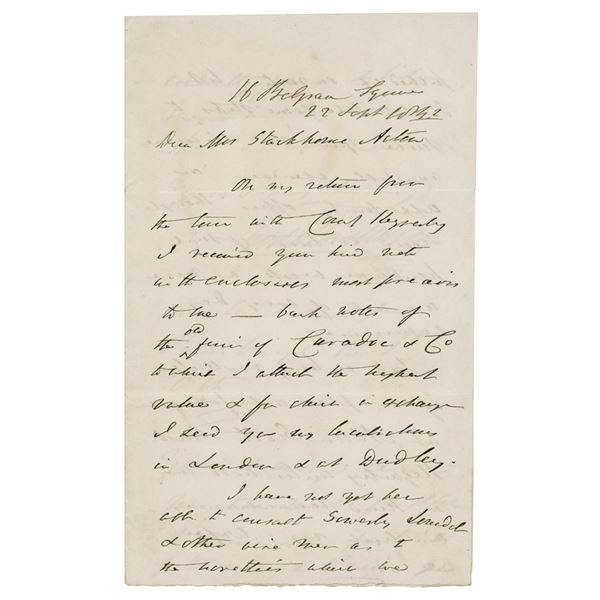 16 Belgrave Square
22 Sept
Dear Mrs Stackhouse Acton
On my return from
the tour with Count Keyserling
I received your kind note
with enclosures most precious
to me — bank notes of
the old firm of Caradoc & Co
to which I attach the highest
value & for which in exchange
I send you my lucubrations
in London & at Dudley.
I have not yet been
able to consult Sowerby Lonsdale
& other wise men as to
the novelties which we